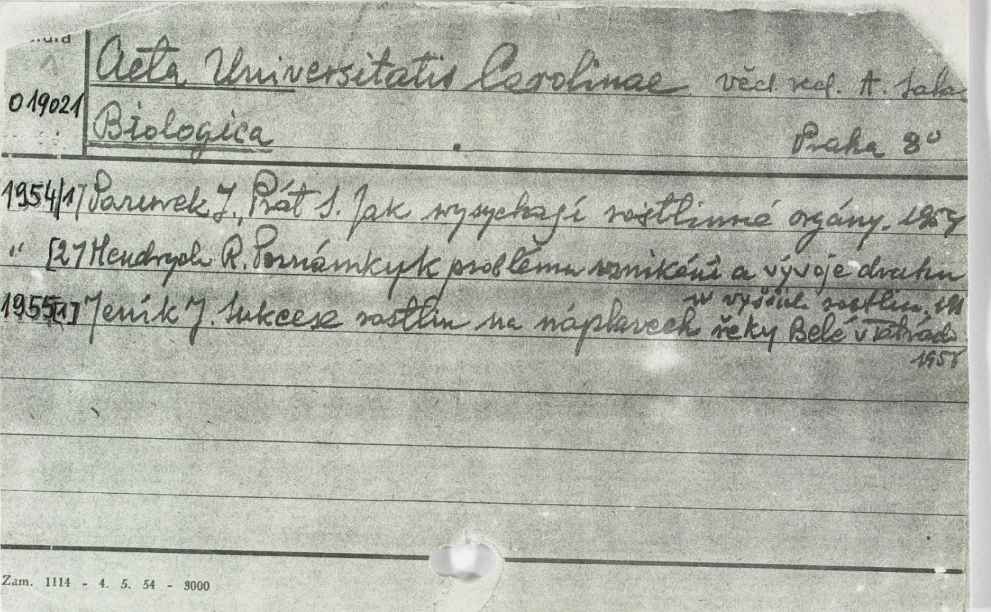 019021
Acta Universitatis Carolinae věd. red. A.
Biologica Praha 8°
1954/1] J., Prát S. Jak wysychají rostlinné orgány. 1954
" [2] Hendrych R. Poznámky k problému wznikání a vývoje druhu
u vyšších rostlin.
1955[1] Jeník J. Sukcese rostlin na náplavech řeky Belé v
1955
Zam. 1114 - 4. 5. 54 - 3000